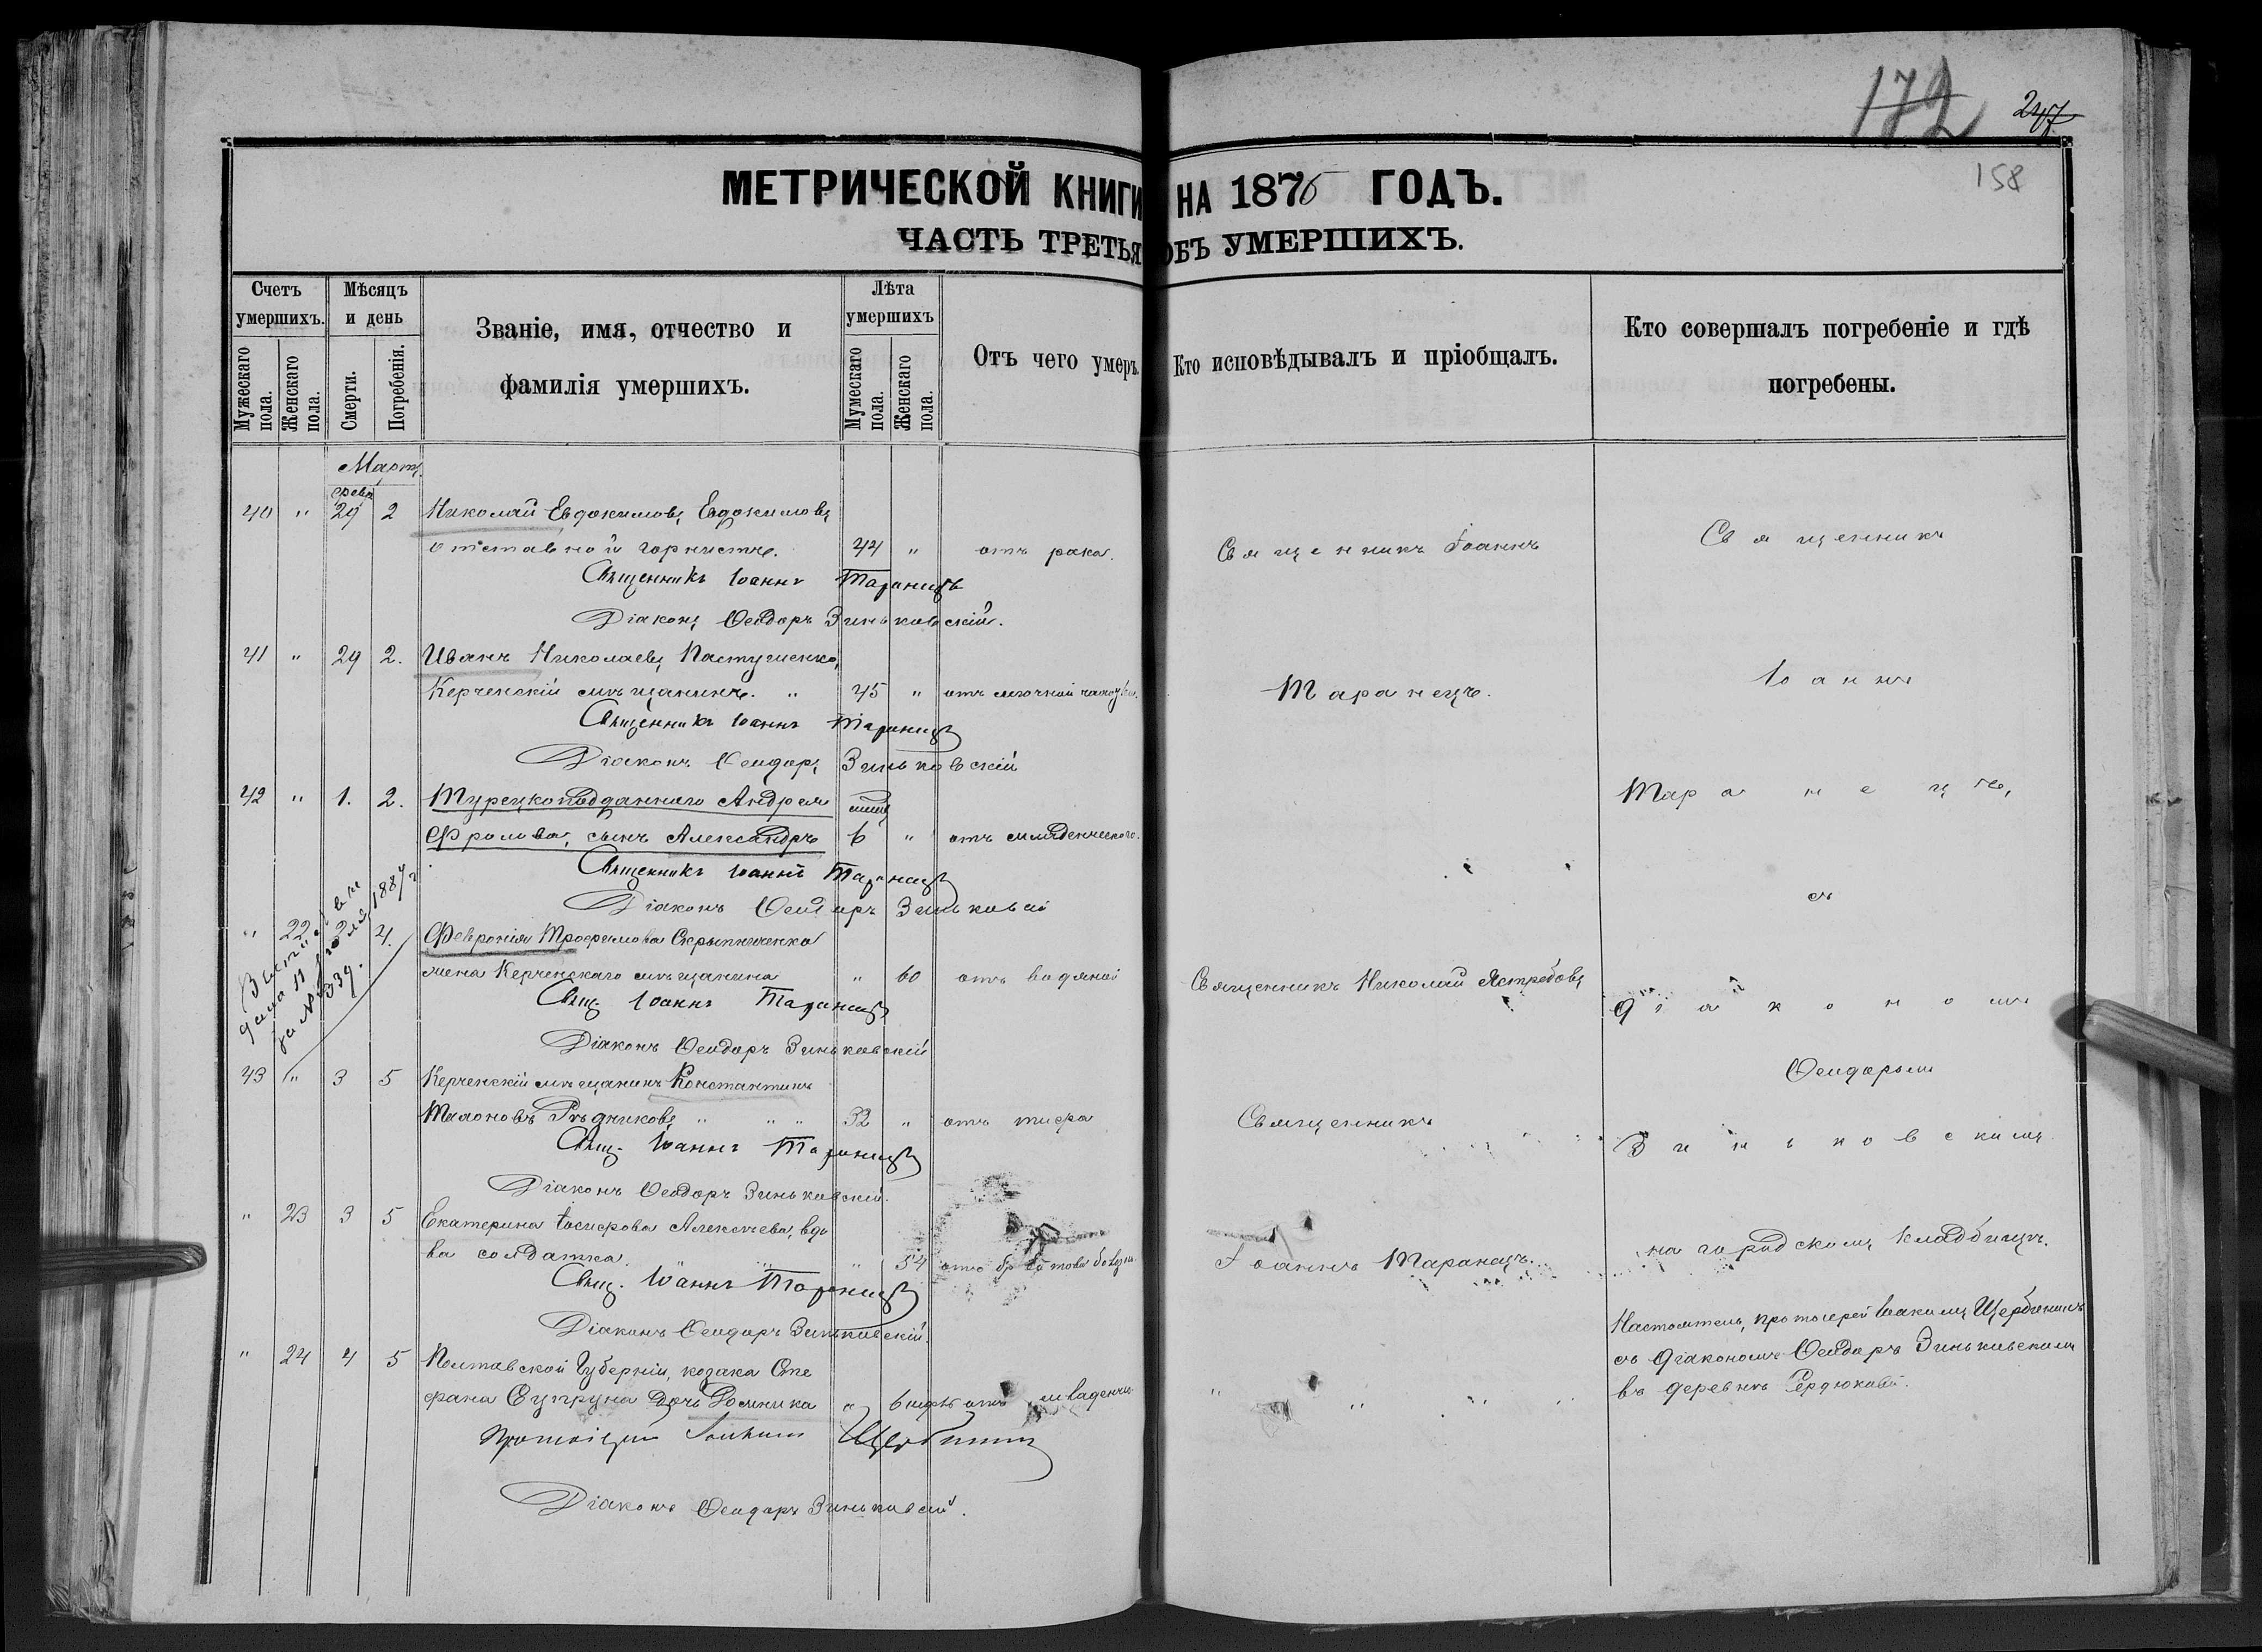 172 247
158
МЕТРИЧЕСКОЙ КНИГИ НА 1876 ГОДЪ.
ЧАСТЬ ТРЕТЬЯ ОБЪ УМЕРШИХЪ.
Счетъ умершихъ.
Мужескаго пола.
Женскаго пола.
Мѣсяцъ и день
Смерти.
Погребенія.
Званіе, имя, отчество и
фамилія умершихъ.
Лѣта умершихъ
Мужескаго пола.
Женскаго пола.
Отъ чего умеръ.
Кто исповѣдывалъ и пріобщалъ.
Кто совершалъ погребеніе и гдѣ
погребены.
Мартъ.
февр.
40 " 29 2 Николай Евдокимовъ Евдокимовъ
отставной горнистъ. 44 " отъ рака.
Священникъ Іоаннъ Таранецъ
Діаконъ Ѳеодоръ Зиньковскій.
41 " 29 2. Иванъ Николаевъ Пастушенко,
Керченскій мѣщанинъ. " 45 " отъ
Священникъ Іоаннъ Таранецъ
Діаконъ Ѳеодоръ Зиньковскій
42 " 1. 2. Турецкоподданнаго Андрея
Фролова, сынъ Александръ 6 " отъ младенческаго.
Священникъ Іоаннъ Таранецъ
Діаконъ Ѳеодоръ Зиньковскій
" 22 2 4. Февронія Трофимова Скрыпниченко
жена Керченскаго мѣщанина " 60 отъ водяной
Свящ. Іоаннъ Таранецъ
Діаконъ Ѳеодоръ Зиньковскій
за № 339.
43 " 3 5 Керченскій мѣщанинъ Константинъ
Рѣдниковъ " " " 32 " отъ тифа
Свящ. Іоаннъ Таранецъ
Діаконъ Ѳеодоръ Зиньковскій.
" 23 3 5 Екатерина Іосифова Алексѣева, вдо
ва солдатка. " " 54 отъ
Свящ. Іоаннъ Таранецъ
Діаконъ Ѳеодоръ Зиньковскій.
" 24 4 5 Полтавской Губерніи, козака Сте
фана Супруна дочь Домника " 6 отъ младенч.
Протоіерей Іоакимъ Щербининъ
Діаконъ Ѳеодоръ Зиньковскій.
Священникъ Іоаннъ
Таранецъ.
Священникъ Николай Ястребовъ
Священникъ
Іоаннъ Таранецъ.
" " " "
Священникъ
Іоаннъ
Таранецъ,
съ
діакономъ
Ѳеодоромъ
Зиньковскимъ
на городскомъ кладбищѣ.
Настоятель, протоіерей Іоакимъ Щербининъ
съ діакономъ Ѳеодоръ Зиньковскимъ
въ деревнѣ